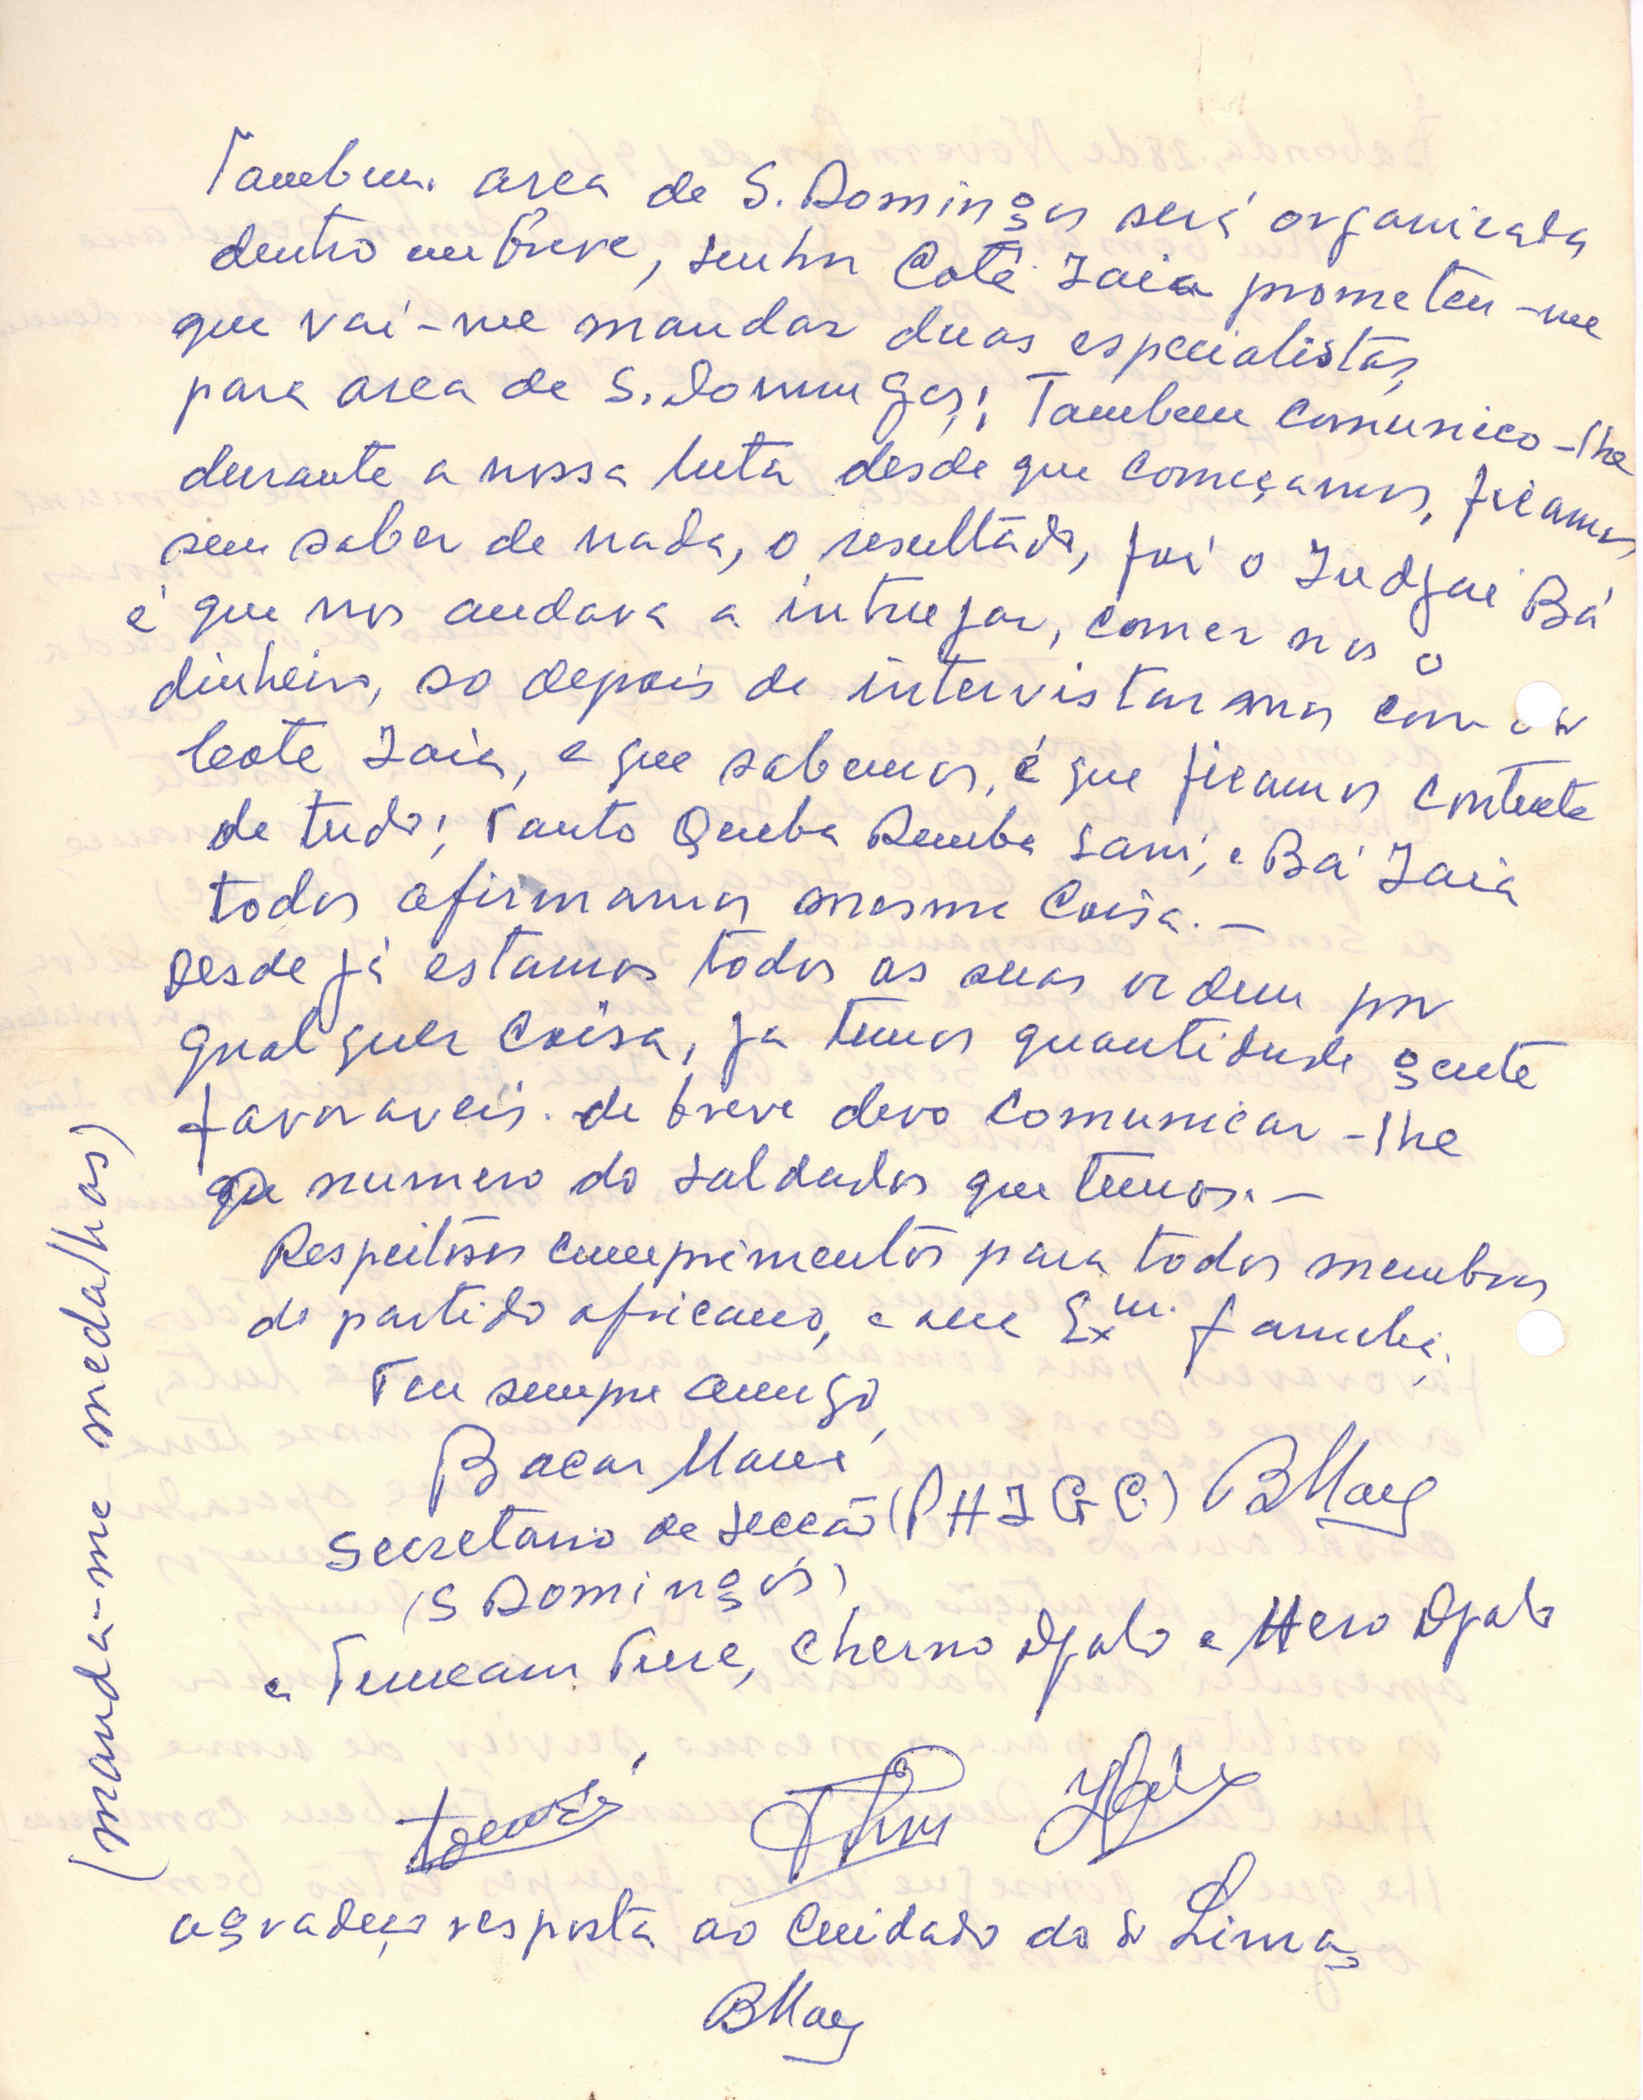 Tambem. area de S. Domingos será organizada
dentro em breve, senhor Coté Zaia prometeu-me
que vai-me mandar duas especialistas,
para area de S. Domingos; Tambem comunico-lhe
durante a nossa luta desde que começamos, ficamos
sem saber de nada, o resultado, foi o Indjai Bá
é que nos andava a intrujar, comer nos o
dinheiro, so depois de intervistarmos com
Cote Zaia, e que sabemos, é que ficamos contente
de tudo; Tanto Queba Demba Sani, e Bá Zaia
todos afirmamos mesma coisa.—
Desde já estamos todos as suas ordem por
qualquer coisa, ja temos quantidade gente
favoraveis. de breve devo comunicar-lhe
numero do saldados que temos.—
Respeitosos cumprimentos para todos membros
do partido africano, e sua Exm. familia.
Teu sempre amigo,
Bacar Mané
Secretario de secção (PAIGC) BMany
(S Domingos)
e Tumcam Ture, Cherno Djalo e Hero Djalo
agradeço resposta ao cuidado do Sr Lima,
BMany
(manda-me medalhas)